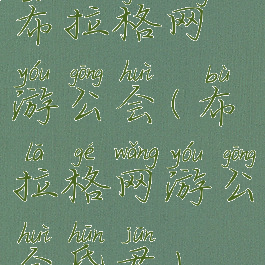 布拉格网
yóu gōng huì bù
游公会(布
lā gé wǎng yóu gōng
拉格网游公
huì hūn jūn
会昏君)